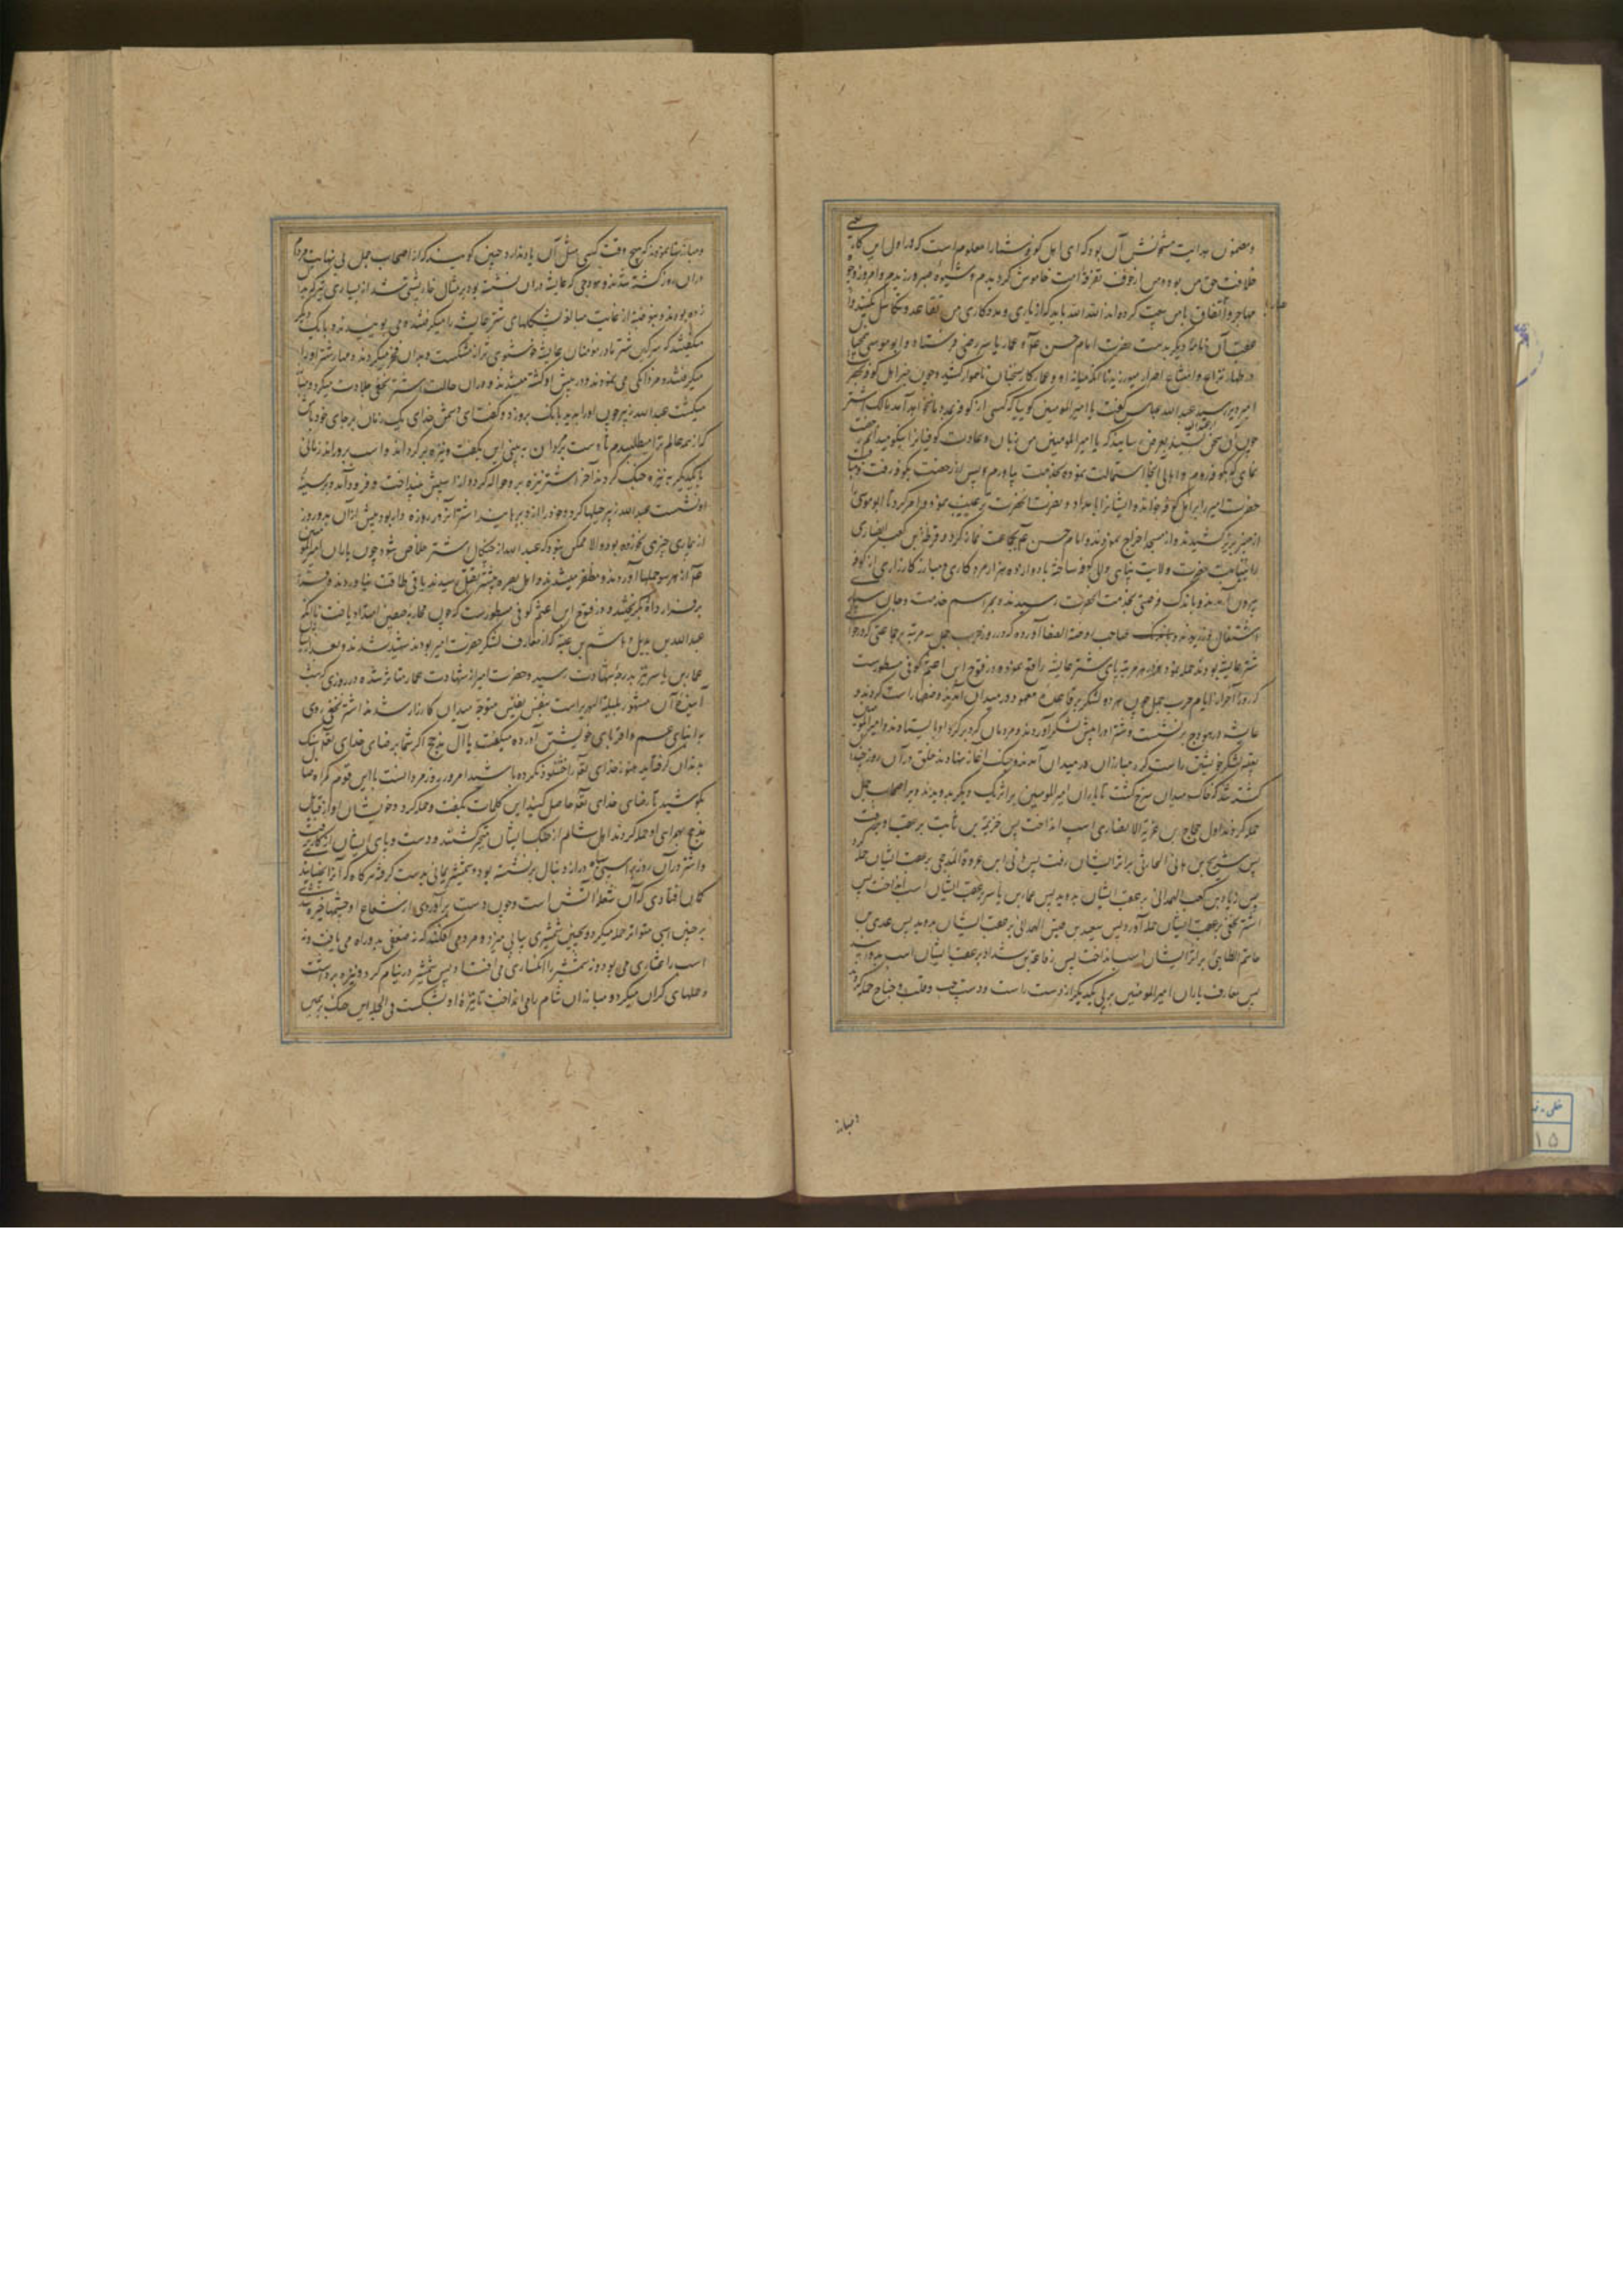 و مضمون هدایت مشحونش آن بود که ای اهل کوفه شما را معلوم است که در اول این کار
خلافت حق من بود و من از خوف تفرقه امت خاموش گردیدم و شیوه صبر ورزیدم و امروز
مهاجر و انصار باتفاق با من بیعت کرده اند الله الله باید که از یاری و مددکاری من تقاعد و تکاسل نکنید
عقب آن نامهٔ دیگر بدست حضرت امام حسن و عمار یاسر رضی فرستاد و ابو موسی
در اظهار نزاع و امتناع اصرار میورزید تا آنکه میانه او و عمار کار بسخنان ناهموار کشید و چون خبر اهل کوفه
امیر رسید عبدالله عباس گفت یا امیر المومنین گویا که کسی از کوفه نخواهد آمد مالک اشتر
چون آن سخن شنید بعرض رسانید که یا امیر المومنین من زبان و عادت کوفیان را نیکو میدانم
بکوفه روم و اهالی آنجا را استمالت نموده بخدمت بیاورم پس از رخصت بکوفه رفت
حضرت امیر را بر اهل کوفه خوانده ایشان را بامداد و نصرت آنحضرت ترغیب نمود و امر کرد تا ابو موسی
از منبر بزیر کشیدند و از مسجد اخراج نمودند و امام حسن بجماعت نماز کرد و قرظة بن کعب انصاری
را بنیابت حضرت ولایت پناهی والی کوفه ساخته با دوازده هزار مرد کاری و مبارز کارزاری از کوفه
بیرون آمدند و باندک فرصتی بخدمت آنحضرت رسیدند و بمراسم خدمت و جان سپاری
اشتغال ورزیدند صاحب روضة الصفا آورده که در روز حرب جمل سه مرتبه بر جماعتی که در حوالی
شتر عایشه بودند حمله نمود و در هر مرتبه پای شتر عایشه را قلم نموده و در فتوح ابن اعثم کوفی مسطور است
که روز آخر از ایام حرب جمل چون هر دو لشکر بر قاعدهٔ معهود در میدان آمدند و صفها راست کردند و
عایشه در هودج نشست و شتر او را پیش لشکر آوردند و مردمان گرد بر گرد او بایستادند و امیر المومنین
لشکر خویش راست کرد مبارزان در میدان آمدند و جنگ آغاز نهادند خلق در آن روز
کشته شد که خاک میدان سرخ گشت تا یاران امیر المومنین بر اثر یک دیگر بدویدند و بر اصحاب جمل
حمله کردند اول حجاج بن غزیة الانصاری اسب انداخت پس خزیمه بن ثابت بر عقب او رفت
پس شریح بن هانی الحارثی بر اثر ایشان رفت پس هانی ابن عروة المذحجی بر عقب ایشان حمله
پس زیاد بن کعب الهمدانی بر عقب ایشان بدوید پس عمار بن یاسر بر عقب ایشان اسب انداخت پس
اشتر نخعی بر عقب ایشان حمله آورد پس سعید بن قیس الهمدانی بر عقب ایشان بدوید پس عدی بن
حاتم الطائی بر اثر ایشان اسب انداخت پس رفاعة بن شداد بر عقب ایشان اسب بدوانید
پس معارف یاران امیر المومنین بر پی یکدیگر از دست راست و دست چپ و قلب و جناح حمله کردند
و مبارز
و مبارزتها نمودند که هیچ وقت کسی مثل آن یاد ندارد و چنین گویند که از اصحاب جمل بی نهایت مردم
در آن روز کشته شدند و هودجی که عایشه در آن نشسته بود بر مثال خارپشتی شد از بسیاری تیر که
زده بودند و بنو ضبه از غایت مبالغه پشکلهای شتر عایشه را میگرفتند و می بوییدند و با یک دیگر
میگفتند که سرگین شتر مادر مؤمنان عایشه خوشبوی تر از مشکست و بدان فخر میکردند و مهار شتر او را
میگرفتند و مردانگی می نمودند و در پیش او کشته میشدند و در آن حالت اشتر نخعی جلادت میکرد و
میگشت عبدالله زبیر چون او را بدید بانگ بر وی زد و گفت ای دشمن خدای یک زمان بر جای خود باش
که از همه عالم ترا میطلبیدم تا دست بردی من به بینی این بگفت و نیزه بر گرداند و اسب بر وی راند زمانی
با یکدیگر به نیزه جنگ کردند آخر اشتر نیزه بر وی حواله کرد و او را از اسپش بینداخت و فرود آمد و بر سینهٔ
او نشست عبدالله زبیر حیلها کرد و خود را از وی برهانید اشتر آنروز روزه دار بود و پیش از آن بدو روز
از بیماری چیزی نخورده بود و الا ممکن نبود که عبدالله از چنگال اشتر خلاص شود چون یاران امیر المومنین
از هر سو حملها آوردند و مظفر میشدند و اهل بصره بیشتر بقتل رسیدند باقی طاقت نیاوردند
بر قرار داده بگریختند و در فتوح ابن اعثم کوفی مسطورست که چون محاربه صفین امتداد یافت تا آنکه
عبدالله بن بدیل و هاشم بن عتبه که از معارف لشکر حضرت امیر بودند شهید شدند و بعد از آن
عمار بن یاسر نیز بدرجهٔ شهادت رسید و حضرت امیر از شهادت عمار متأثر شده در روزی که شب
آیندهٔ آن مشهور بلیلة الهریر است بنفس نفیس متوجه میدان کارزار شدند اشتر نخعی روی
به ابنای عم و اقربای خویش آورده میگفت یا آل مذحج اگر شما برضای خدای تعالی سنگ
به دندان گرفتاید هنوز خدای تعالی را خشنود نکرده باشید امروز روز مردانست با این قوم گمراه
بکوشید تا رضای خدای تعالی حاصل کنید این کلمات بگفت و حمله کرد و خویشان او از قبایل
مذحج بهمراهی او حمله کردند اهل شام از جنگ ایشان متحیر گشتند و دست و پای ایشان از کار برفت
و اشتر در آن روز بر اسپی سیاه دراز دنبال برنشسته بود و شمشیر یمانی بدست گرفته هر گاه که آنرا بجنبانیدی
گمان افتادی که آن شعلهٔ آتش است و چون دست بر آوردی از شعاع او چشمها خیره شدی
بر چنین اسپی متواتر حمله میکرد و بچنین شمشیری پیاپی میزد و مردم می افکند که نه ضعفی بدو راه می یافت و نه
اسب را عثاری می بود و نه شمشیر را انکساری می افتاد پس شمشیر در نیام کرد و نیزه برداشت
و حملهای گران میکرد و مبارزان شام را می انداخت تا نیزهٔ او بشکست فی الجمله این جنگ بر همین
خطی
۱۵